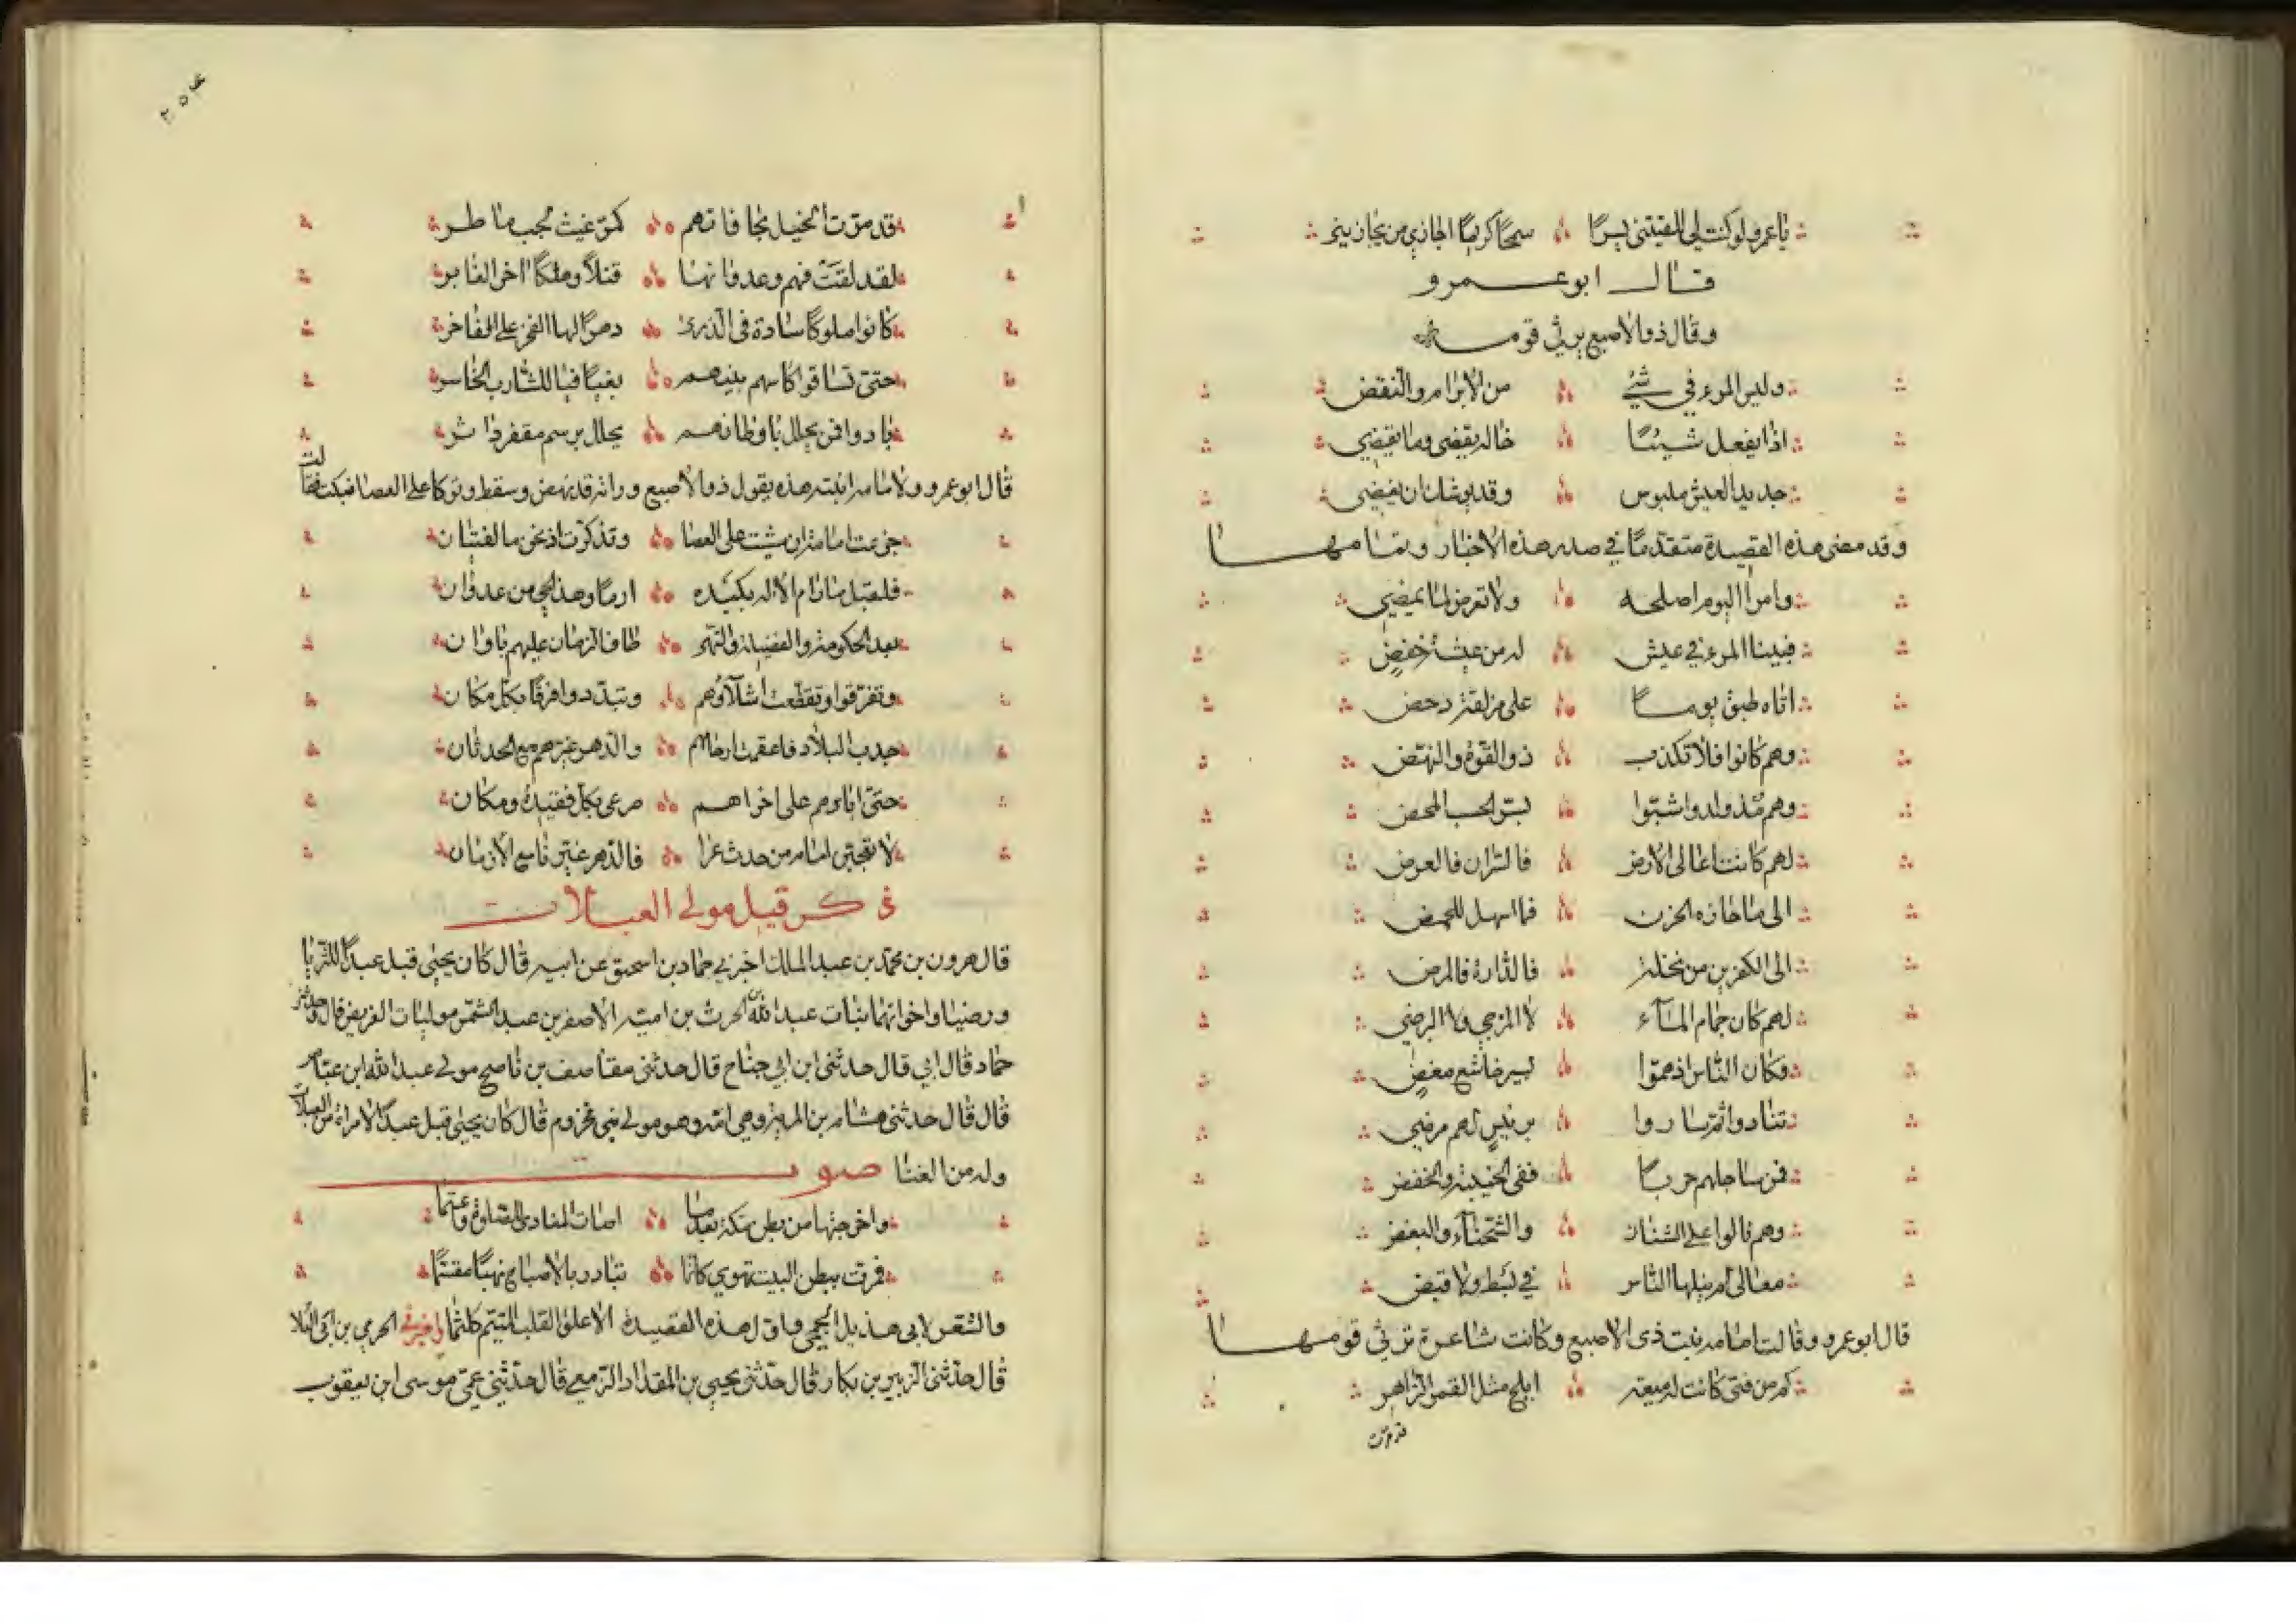 يا عمرو لو كنت لي الفيتني يسرا سمحا كريما اجازي من يجازيني
قال ابو عمرو
وقال ذو الاصبع يرثي قومه
وليس المرء في شيء من الابرام والنقض
اذا يفعل شيئا خاله يقضي وما يقضي
جديد العيش ملبوس وقد يوشك ان ينضي
وقد مضى هذه القصيدة متقدما في صدر هذه الاخبار وتمامها
وامر اليوم اصلحه ولا تعرض لما يمضي
فبينا المرء في عيش له من عيشة خفض
اتاه طبق يوما على مزلقة دحض
وهم كانوا فلا تكذب ذو القوة والنهض
وهم مذ ولدوا اشبوا بسر الحسب المحض
لهم كانت اعالي الارض فالسران فالعرض
الى ما حازه الحزن فما اسهل للحمض
الى الكفرين من نخلة فالدارة فالمرض
لهم كان جمام الماء لا المزجي ولا البرضي
فكان الناس اذ هموا بيسر خاشع مغض
تنادوا ثم ساروا برئيس لهم مرضي
فمن ساجلهم حربا ففي الخيبة والخفض
وهم نالوا على الشنان والشحناء والبغض
معالي لم ينلها الناس في بسط ولا قبض
قال ابو عمرو وقالت امامه بنت ذي الاصبع وكانت شاعرة ترثي قومها
كم من فتى كانت له ميعة ابلج مثل القمر الزاهر
قد مرت
قد مرت الخيل بحافاتهم كمر غيث لجب ماطر
لقد لقيت فهم وعدوانها قتلا وهلكا اخر الغابر
كانوا ملوكا سادة في الذرى دهرا لها الفخر على الفاخر
حتى تساقوا كاسهم بينهم بغيا فيا للشارب الخاسر
بادوا فمن يحلل باوطانهم يحلل برسم مقفر داثر
قال ابو عمرو ولامامه ابنته هذه يقول ذو الاصبع وراته قد نهض وسقط وتوكا على العصا فبكت فقالت
جزعت امامة ان مشيت على العصا وتذكرت اذ نحن مالفتيان
فلقبل ما رام الاله بكيده ارما وهذا الحي من عدوان
بعد الحكومة والفضيلة والنهى طاف الزمان عليهم باوان
وتفرقوا وتقطعت اشلاؤهم وتبددوا فرقا بكل مكان
جدب البلاد فاعقمت ارحامهم والدهر غيرهم مع الحدثان
حتى ابادهم على اخراهم صرعى بكل فقيدة ومكان
لا تعجبن امام من حدث عرا فالدهر غيرنا مع الازمان
ذكر قيل مولى العبلات
قال هرون بن محمد بن عبد الملك اخبرني حماد بن اسحق عن ابيه قال كان يحيى قيل عبدا للثريا
ورضيا واخواتهما بنات عبد الله بن الحرث بن امية الاصغر بن عبد الشمس موليات الغريض قال وحدثني
حماد قال ابي قال حدثني ابن ابي جناح قال حدثني مقاصف بن ناصح مولى عبد الله ابن عباس
قال قال حدثني هشام بن المرية وهي امه وهو مولى بني مخزوم قال كان يحيى قيل عبدا لامراة من العبلات
وله من الغنا صوت
واخرجتها من بطن مكة بعدما اصات المنادي للصلوة واعتما
فمرت ببطن البيت تهوي كانما تبادر بالاصباح نهبا مقسما
والشعر لابي هذيل الجمحي واول هذه القصيدة الا علق القلب المتيم كلثما واخبرني الحرمي بن ابي العلا
قال حدثني الزبير بن بكار قال حدثني يحيى بن المقداد الزمعي قال حدثني عمي موسى ابن يعقوب